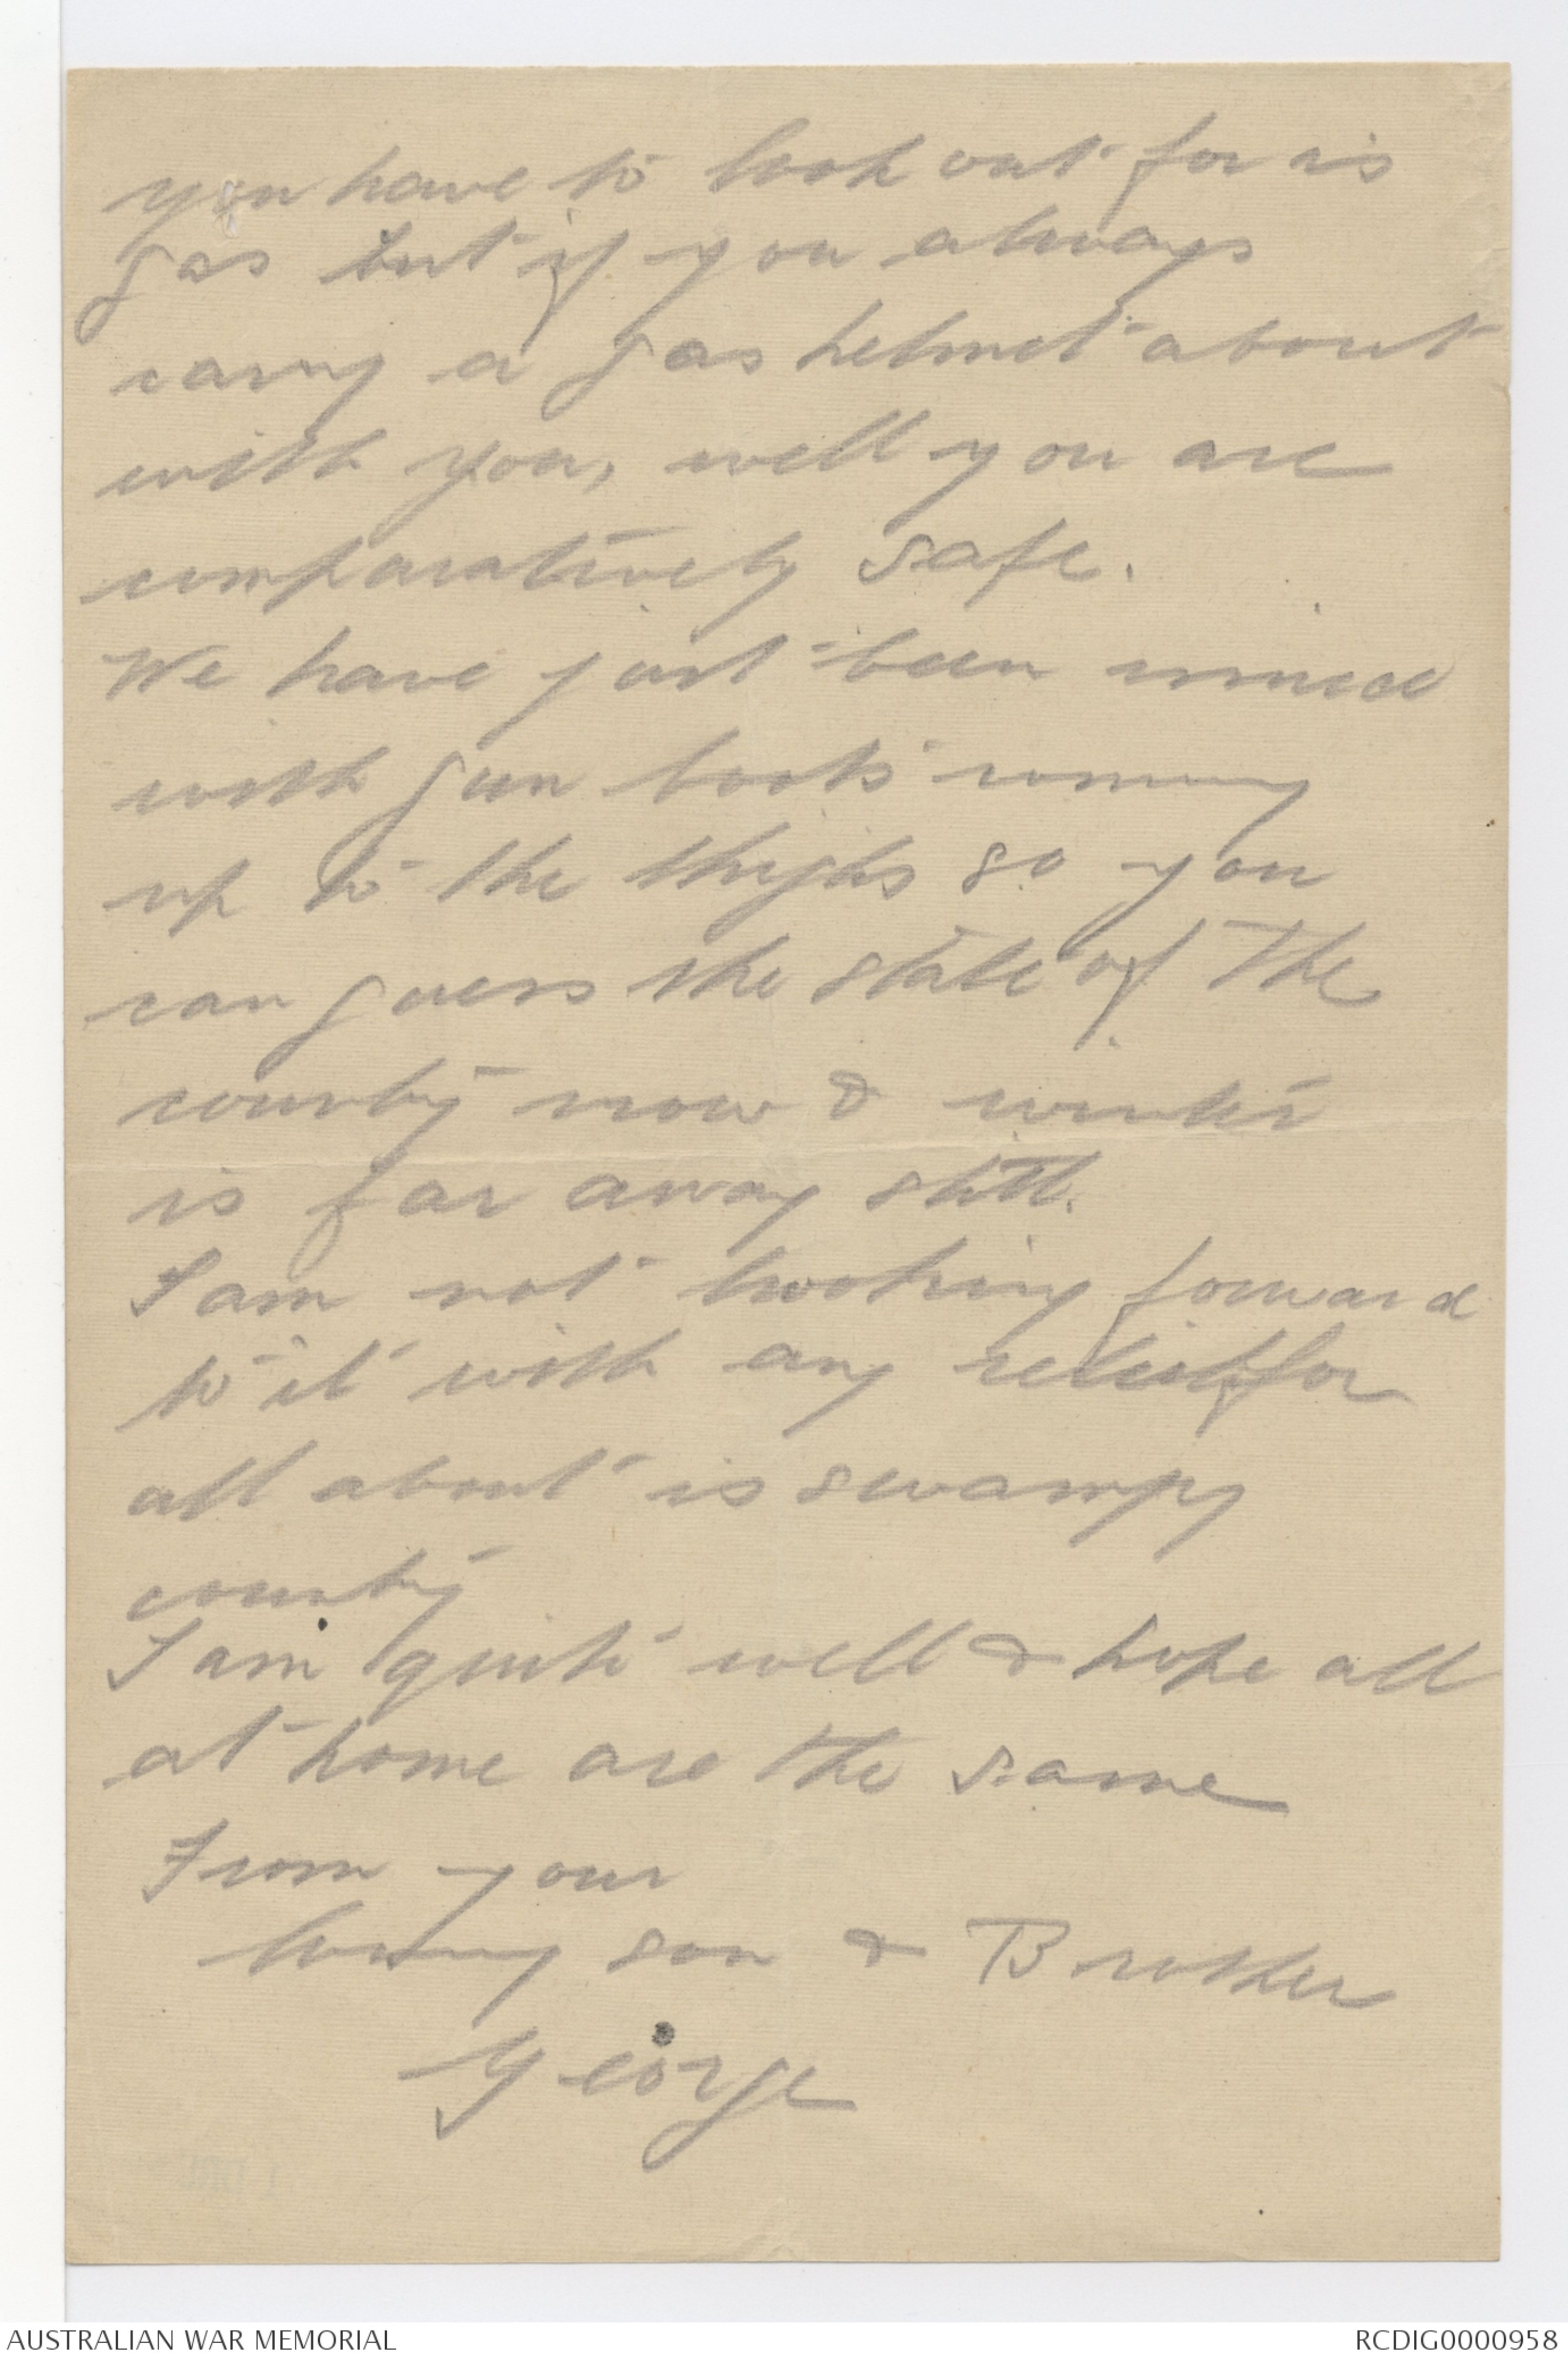 you have to look out for is
gas but if you always
carry a gas helmet about
with you, well you are
comparatively safe.
We have just been issued
with gum boots coming
up to the thighs so you
can guess the state of the
country now & winter
is far away still.
I am not looking forward
to it with any relish for
all about is swampy
country
I am quite well & hope all
at home are the same
From your
loving son & Brother
George
AUSTRALIAN WAR MEMORIAL
RCDIG0000958